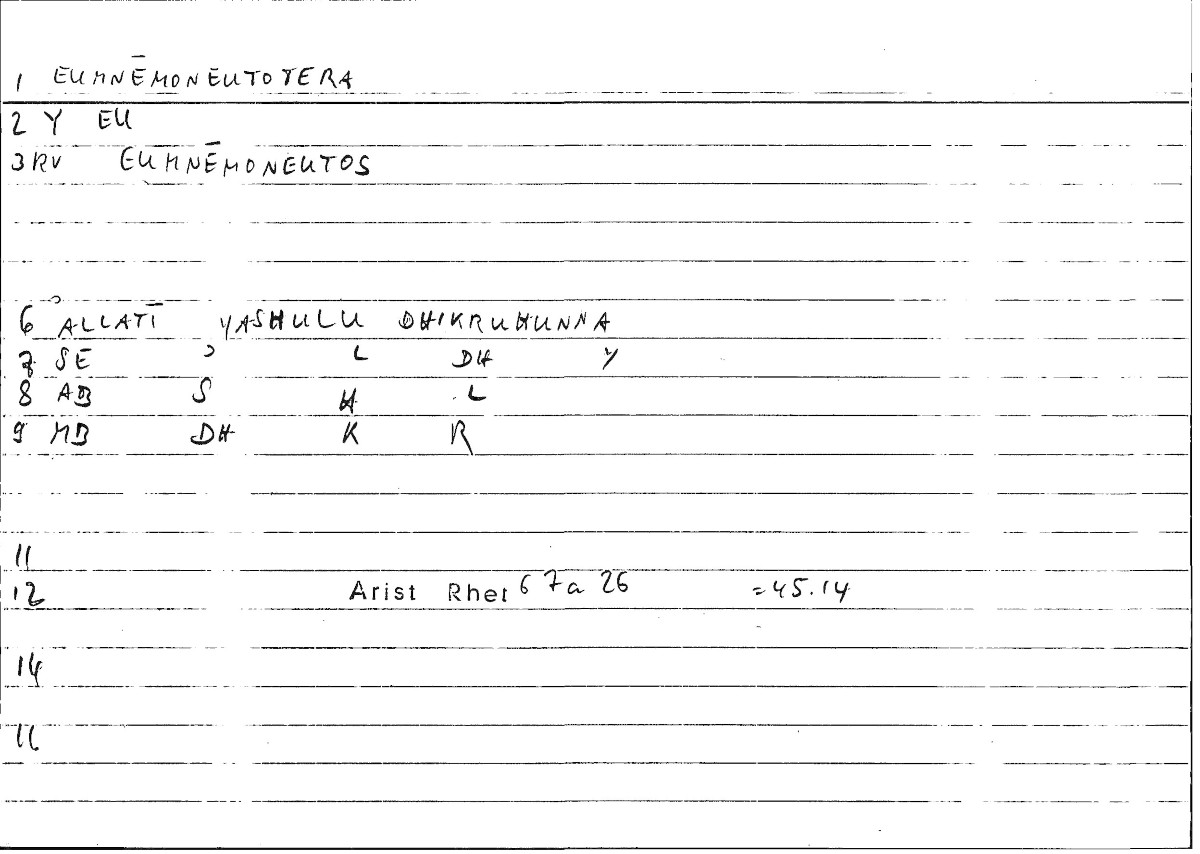 1 EUMNĒMONEUTOTERA
2 Y EU
3 RV EUMNĒMONEUTOS
6 ʾALLATĪ YASHULU DHIKRUHUNNA
7 SE ʾ L DH Y
8 AB S H L
9 MB DH K R
11
12 Arist Rhet 67a 26 =45.14
14
16